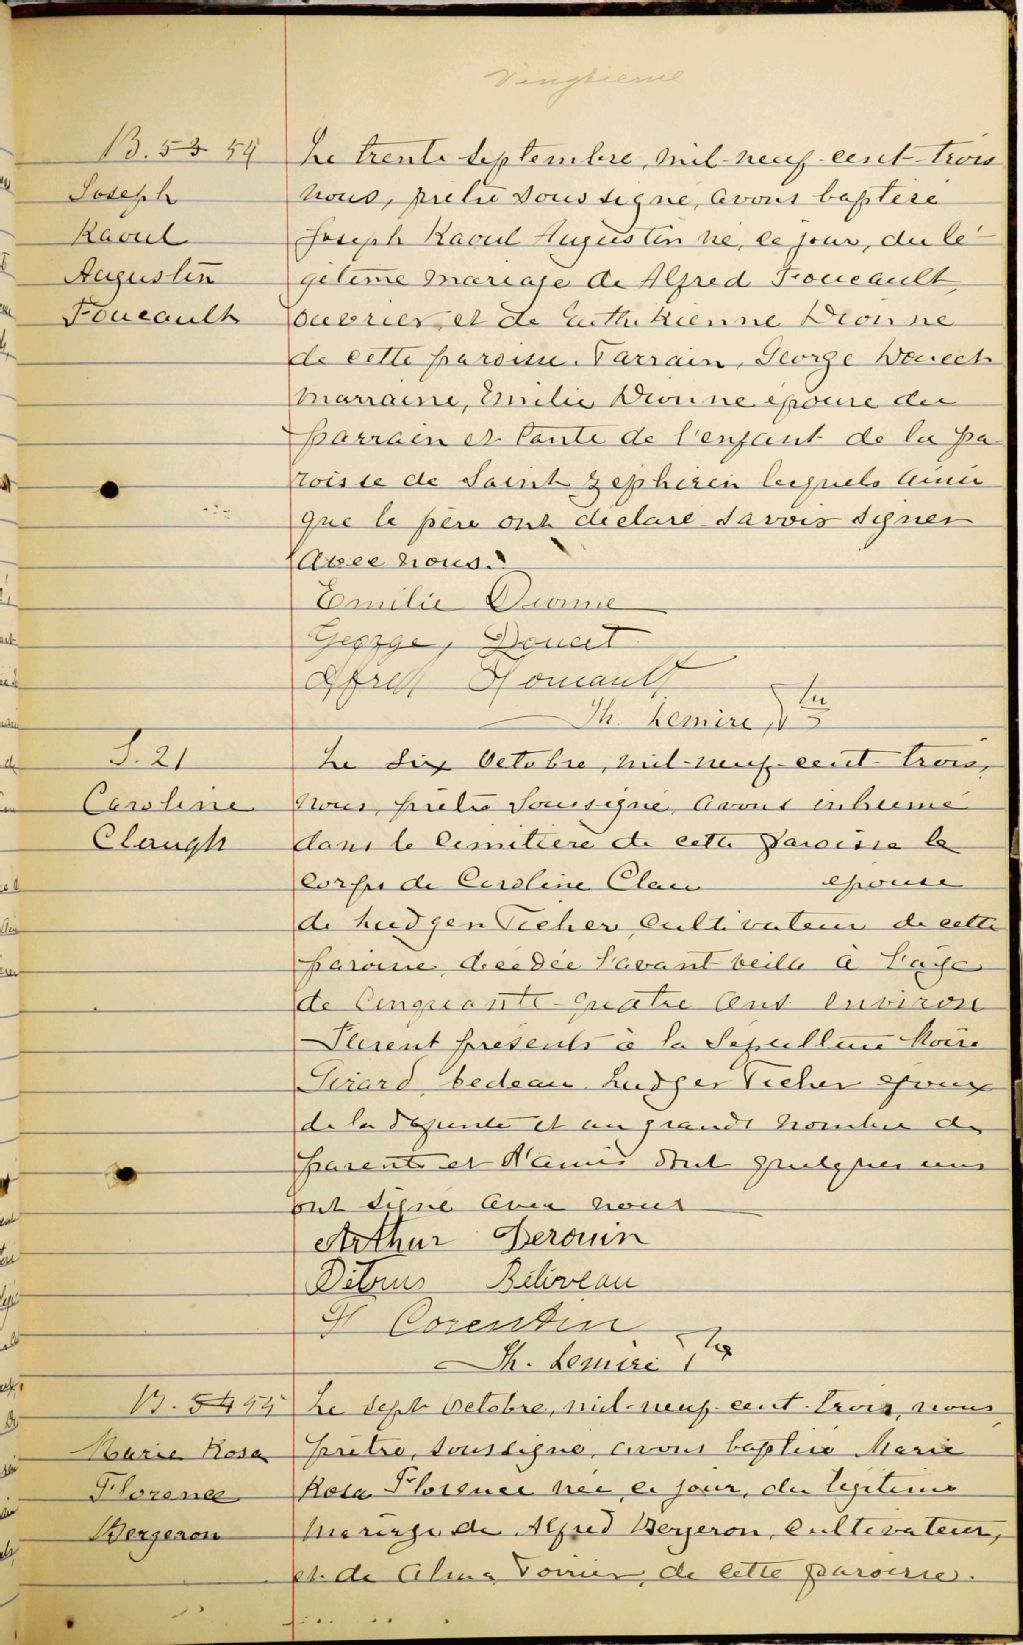 Vingtième
B. 53 54
Joseph
Raoul
Augustin
Foucault
Le trente septembre, mil-neuf-cent-trois
nous, prêtre soussigné, avons baptisé
Joseph Raoul Augustin né, ce jour, du lé-
gitime mariage de Alfred Foucault,
ouvrier, et de Dionne
de cette paroisse. Parrain, George Doucet
marraine, Emilie Dionne épouse du
parrain et tante de l'enfant de la pa
roisse de Saint Zéphirin lesquels ainsi
que le père ont déclaré savoir signer
avec nous.
Emilie Dionne
George, Doucet
Alfred Foucault
Th. Lemire, Ptre
S. 21
Caroline
Clough
Le six Octobre, mil-neuf-cent-trois,
nous, prêtre soussigné, avons inhumé
dans le cimitière de cette paroisse le
corps de Caroline Clau épouse
de Ludger Picher, cultivateur de cette
paroisse, décédée l'avant veille à l'âge
de cinquante-quatre ans environ
Furent présents à la sépulture Moïse
Girard, bedeau Ludger Picher époux
de la défunte et un grand nombre de
parents et d'amis dont quelques uns
ont signé avec nous
Arthur Derouin
Béliveau
Corentin
Th. Lemire Ptre
B. 54 55
Marie Rosa
Florence
Bergeron
Le sept Octobre, mil-neuf-cent-trois, nous,
prêtre, soussigné, avons baptisé Marie
Rosa Florence née, ce jour, du légitime
mariage de Alfred Bergeron, cultivateur,
et de Alma Poirier, de cette paroisse.